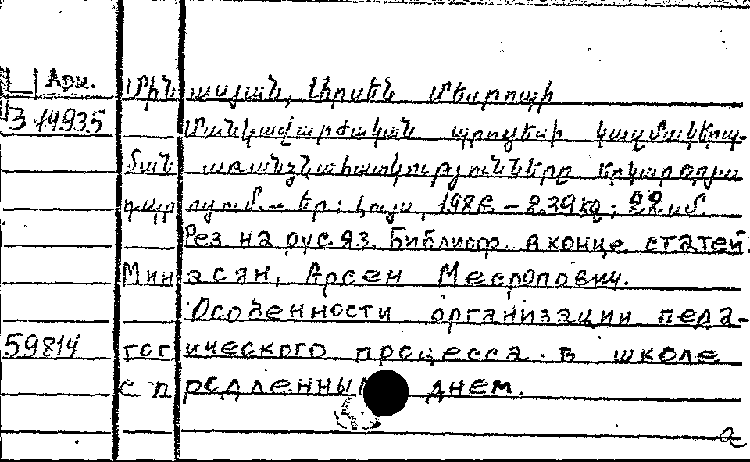 Арм. Մինասյան, Արսեն Մեսրոպի
З 14935 Մանկավարժական պրոցեսի կազմակերպ-
ման առանձնահատկությունները երկարօրյա
դպրոցում. – Եր.: Լույս, – 239 էջ; 22 սմ.
Рез. на рус. яз. Библиогр. в конце статей.
Минасян, Арсен Месропович.
Особенности организации педа-
59814 гогического процесса в школе
с продленным днем.